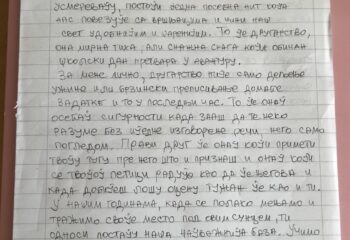 усмеравају, постоји једна посебна нит која
нас повезује са вршњацима и чини наш
свет удобнијим и шаренијим. То је другарство,
она мирна тиха, али снажна снага која обичан
школски дан претвара у авантуру.
За мене лично, другарство није само дељење
ужине или брзински преписивање домаће
задатке и то у последњи час. То је онај
осећај сигурности када знаш да те неко
разуме без иједне изговорене речи, него само
погледом. Прави друг је онај који примети
твоју тугу пре него што и признаш и онај који
се твојој петици радује као да је његова и
када добијеш лошу оцену тужан је као и ти.
У нашим годинама, када се полако мењамо и
тражимо своје место под овим сунцем, ти
односи постају наша најважнија брза. Учимо